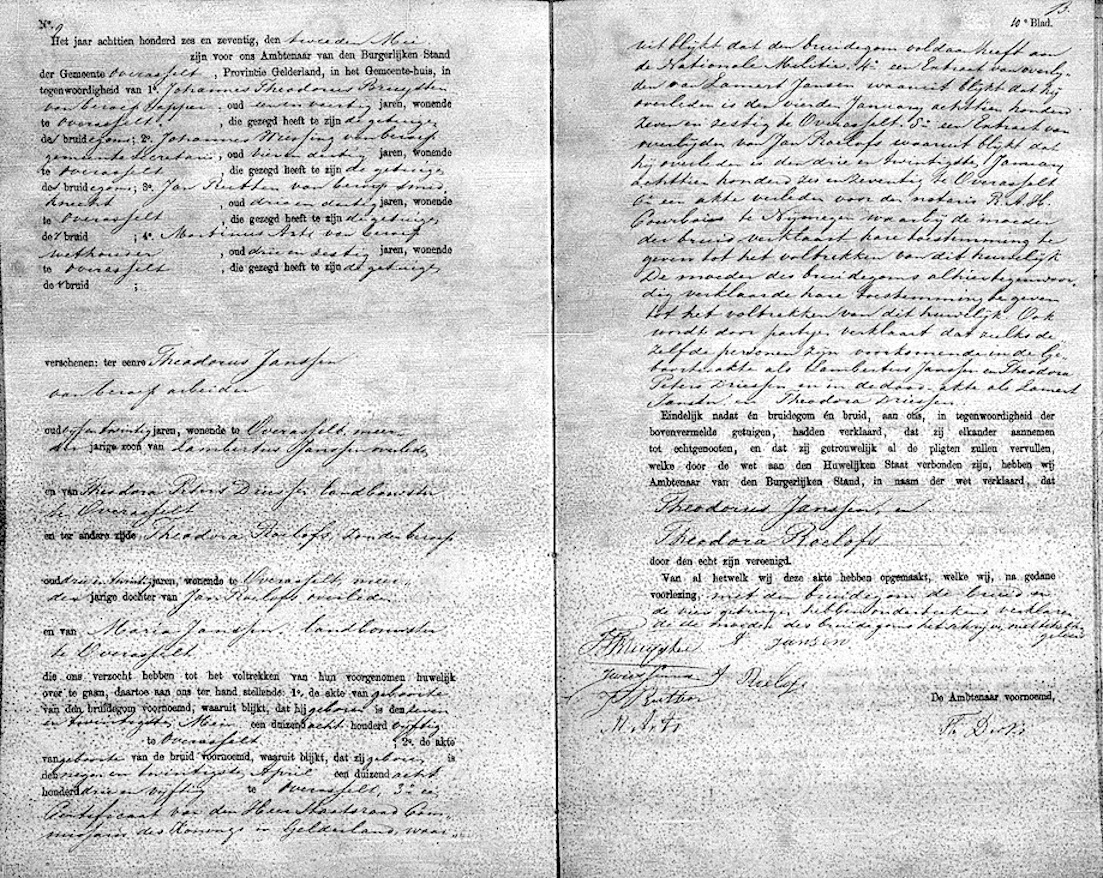 No. 9
Het jaar achttien honderd zes en zeventig, den tweeden Mei
zijn voor ons Ambtenaar van den Burgerlijken Stand
der Gemeente Overasselt, Provincie Gelderland, in het Gemeente-huis, in
tegenwoordigheid van 1°. Johannes Theodorus Kruysten
van beroep Tapper, oud een en veertig jaren, wonende
te Overasselt, die gezegd heeft te zijn de getuige
des bruidegoms; 2°. Johannes Wiessing van beroep
gemeente secretaris, oud vier en dertig jaren, wonende
te Overasselt die gezegd heeft te zijn de getuige
des bruidegoms; 3°. Jan Rutten van beroep smids
knecht, oud drie en dertig jaren, wonende
te Overasselt, die gezegd heeft te zijn de getuige
der bruid; 4°. Martinus Arts van beroep
wethouder, oud drie en zestig jaren, wonende
te Overasselt, die gezegd heeft te zijn de getuige
der bruid;
verschenen: ter eenre Theodorus Janssen
van beroep arbeider
oud vijf en twintig jaren, wonende te Overasselt, meer-
der jarige zoon van Lambertus Janssen overleden
en van Theodora Peters Driessen landbouwster
te Overasselt
en ter andere zijde Theodora Roelofs, zonder beroep
oud drie en twintig jaren, wonende te Overasselt, meer-
der jarige dochter van Jan Roelofs overleden
en van Maria Janssen, landbouwster
te Overasselt
die ons verzocht hebben tot het voltrekken van hun voorgenomen huwelijk
over te gaan, daartoe aan ons ter hand stellende: 1°. de akte van geboorte
van den bruidegom voornoemd, waaruit blijkt, dat hij geboren is den zeven
en twintigste Mei een duizend acht honderd vijftig
te Overasselt; 2°. de akte
van geboorte van de bruid voornoemd, waaruit blijkt, dat zij geboren is
den negen en twintigste April een duizend acht
honderd drie en vijftig te Overasselt, 3° een
Certificaat van den Heer Staatsraad Com-
missaris des Konings in Gelderland, waar-
13.
10e Blad.
uit blijkt dat den bruidegom voldaan heeft aan
de Nationale Militie. 4° een Extract van overly-
den van Lamert Jansen waaruit blijkt dat hij
overleden is den vierden January achttien honderd
zeven en zestig te Overasselt. 5° een Extract van
overlyden van Jan Roelofs waaruit blijkt dat
hij overleden is den drie en twintigste January
achttien honderd zes en zeventig te Overasselt
6° een akte verleden voor den notaris R. A. H.
Courbois te Nijmegen waarbij de moeder
der bruid verklaart hare toestemming te
geven tot het voltrekken van dit huwelijk
De moeder des bruidegoms alhier tegenwoor-
dig verklaarde hare toestemming te geven
tot het voltrekken van dit huwelijk Ook
wordt door partijen verklaart dat zulks de-
zelfde personen zijn voorkomende in de Ge-
boorte akte als Lambertus Janssen en Theodora
Peters Driessen en in de dood-akte als Lamert
Jansen en Theodora Driessen.
Eindelijk nadat én bruidegom én bruid, aan ons, in tegenwoordigheid der
bovenvermelde getuigen, hadden verklaard, dat zij elkander aannemen
tot echtgenooten, en dat zij getrouwelijk al de pligten zullen vervullen,
welke door de wet aan den Huwelijken Staat verbonden zijn, hebben wij
Ambtenaar van den Burgerlijken Stand, in naam der wet verklaard, dat
Theodorus Janssen, en
Theodora Roelofs
door den echt zijn vereenigd.
Van al hetwelk wij deze akte hebben opgemaakt, welke wij, na gedane
voorlezing, met den bruidegom de bruid en
de vier getuigen hebben onderteekend verklaren
de de moeder des bruidegoms het schrijven niet te hebben
geleerd
Kruysten Jansen
Roelofs
Rutten
De Ambtenaar voornoemd,
M. Arts